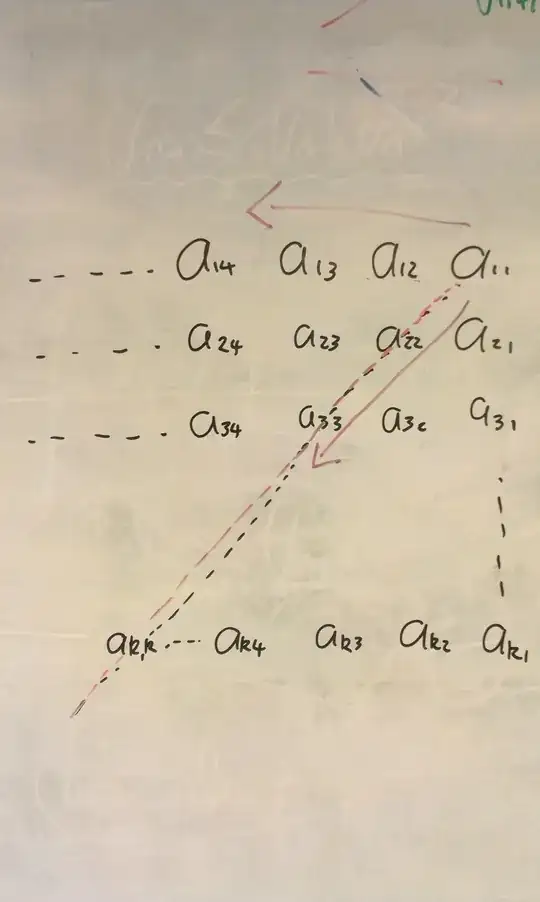 - - - - - . a₁₄ a₁₃ a₁₂ a₁₁
- . - - . a₂₄ a₂₃ a₂₂ a₂₁
- - - - - . a₃₄ a₃₃ a₃c a₃₁
aₖ,ₖ . - - - aₖ₄ aₖ₃ aₖ₂ aₖ₁